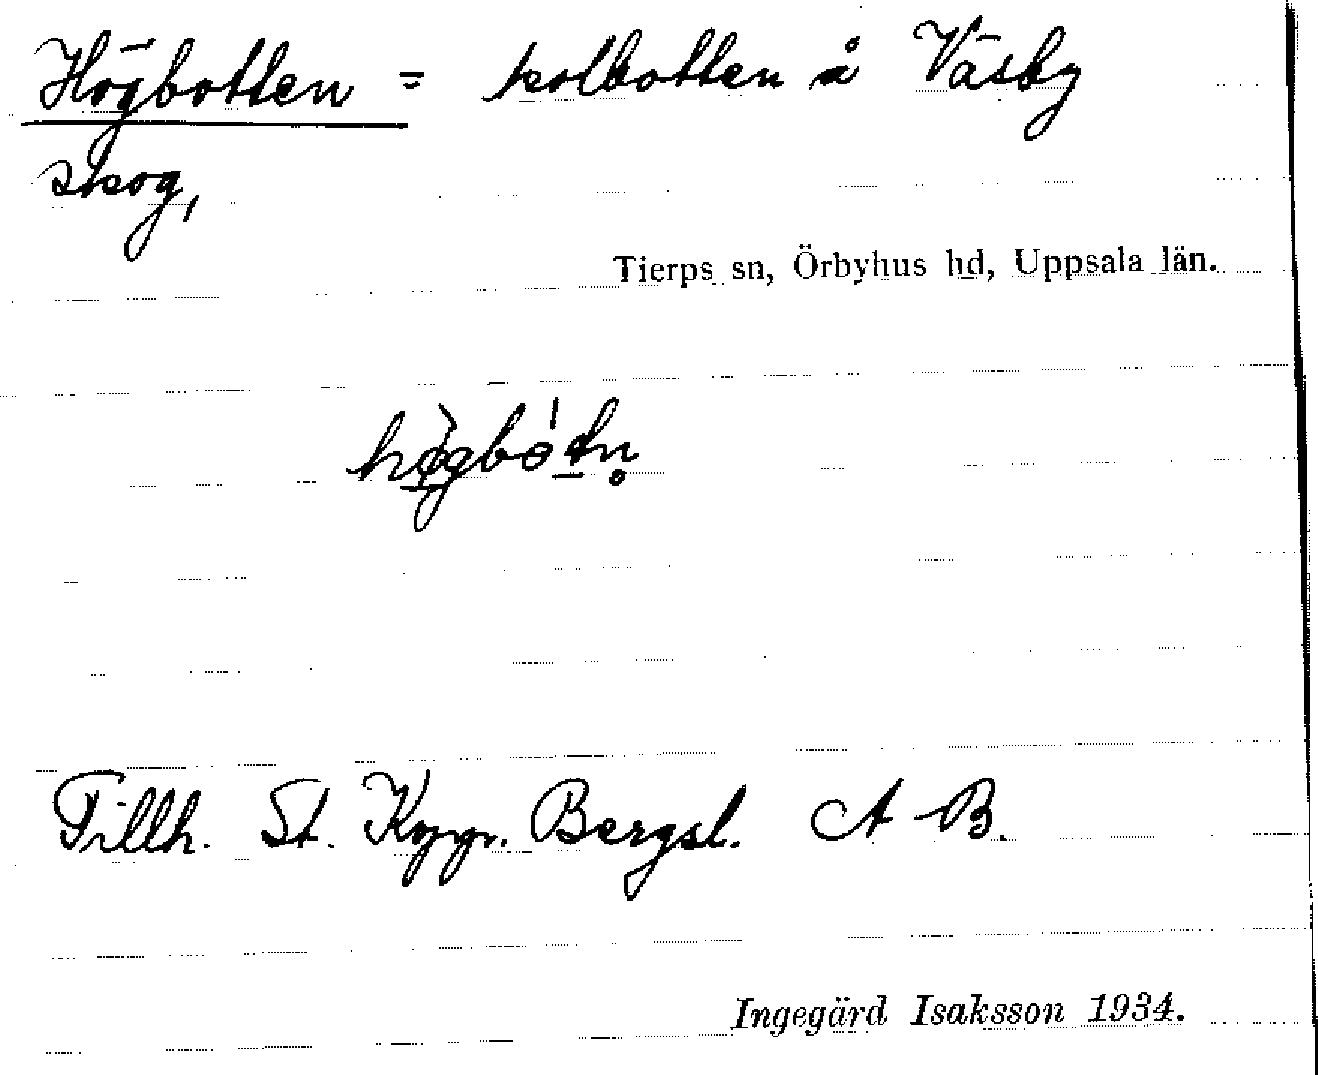 Högbotten = kolbotten å Väsby
skog,
Tierps sn, Örbyhus hd, Uppsala län.
hø̀gbótn̥
Tillh. St. Kopp. Bergsl. A B.
Ingegärd Isaksson 1934.